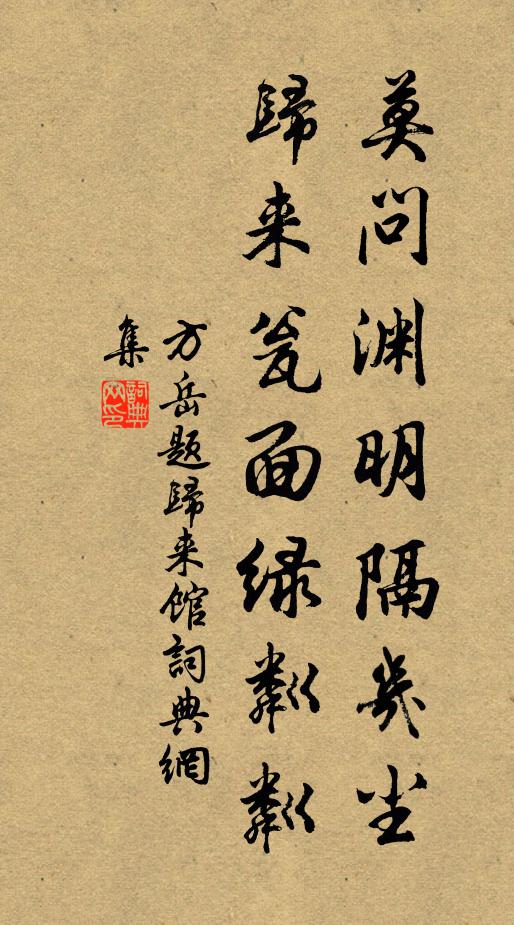 莫问渊明隔几尘
归来瓮面绿粼粼
方岳题归来馆词典网
集
词典网印